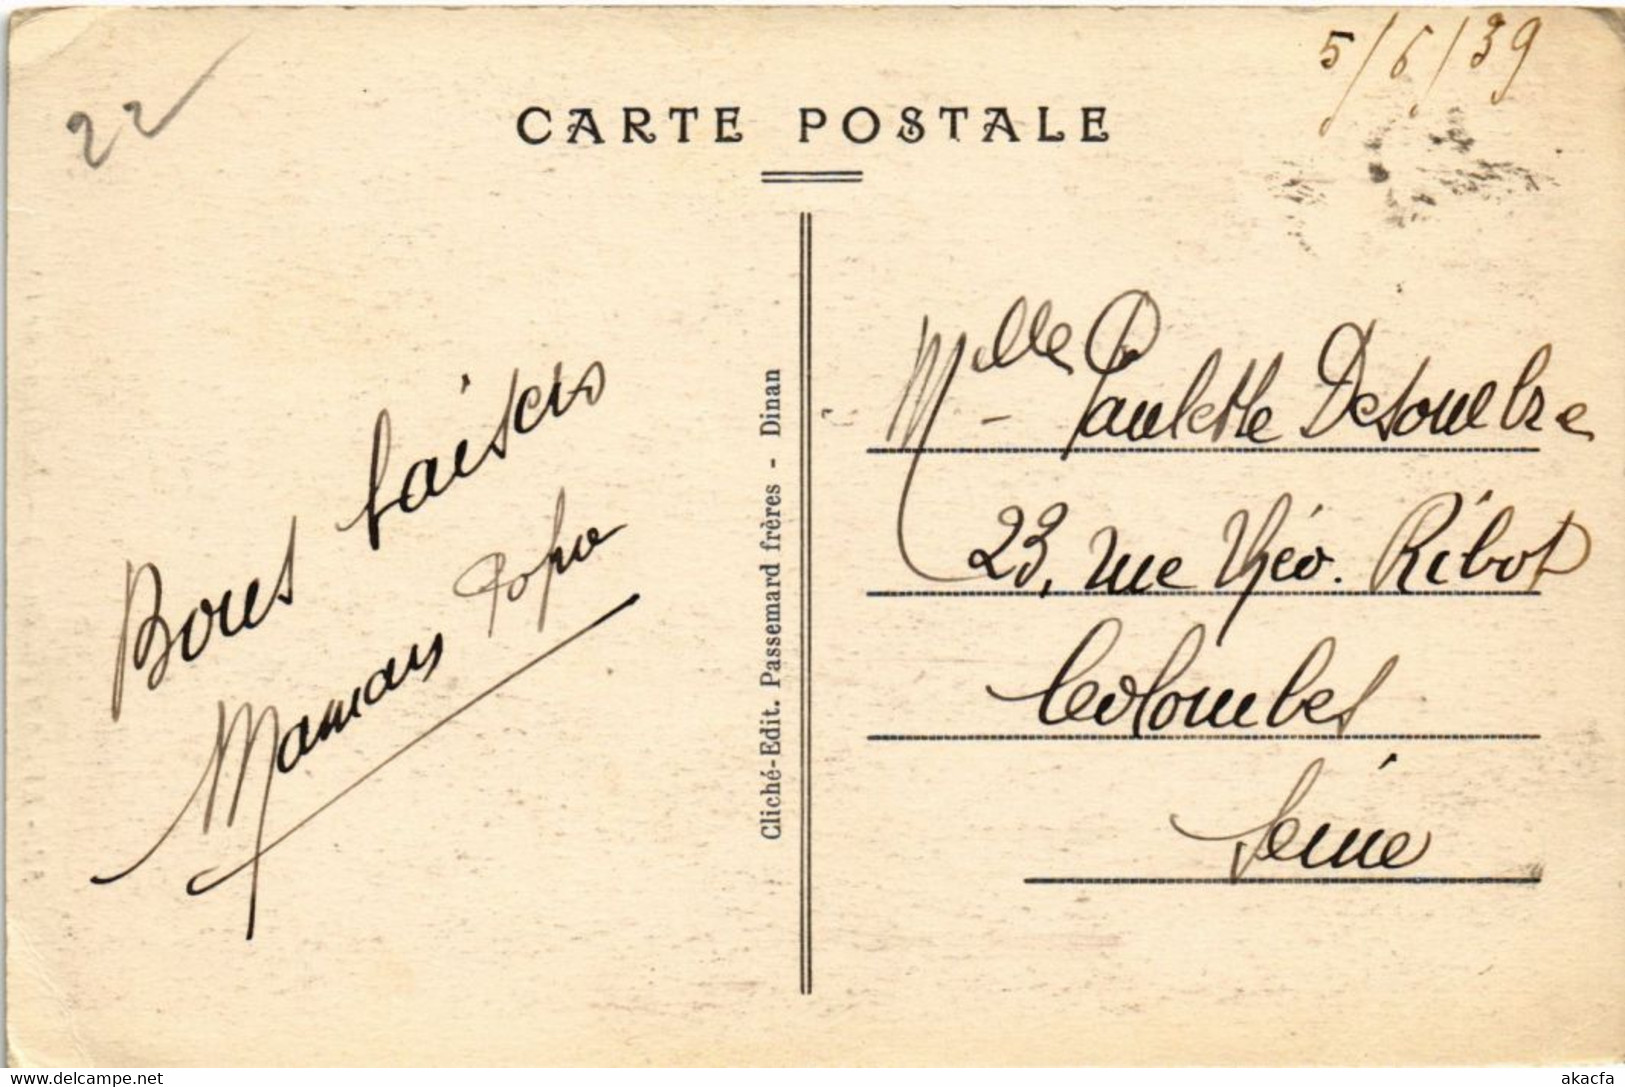 22
5/6/39
CARTE POSTALE
Bons baisers
Maman Papa
Cliché-Edit. Passemard frères - Dinan
Mlle Paulette Desombre
23, rue Théo. Ribot
Colombes
Seine
www.delcampe.net
akacfa